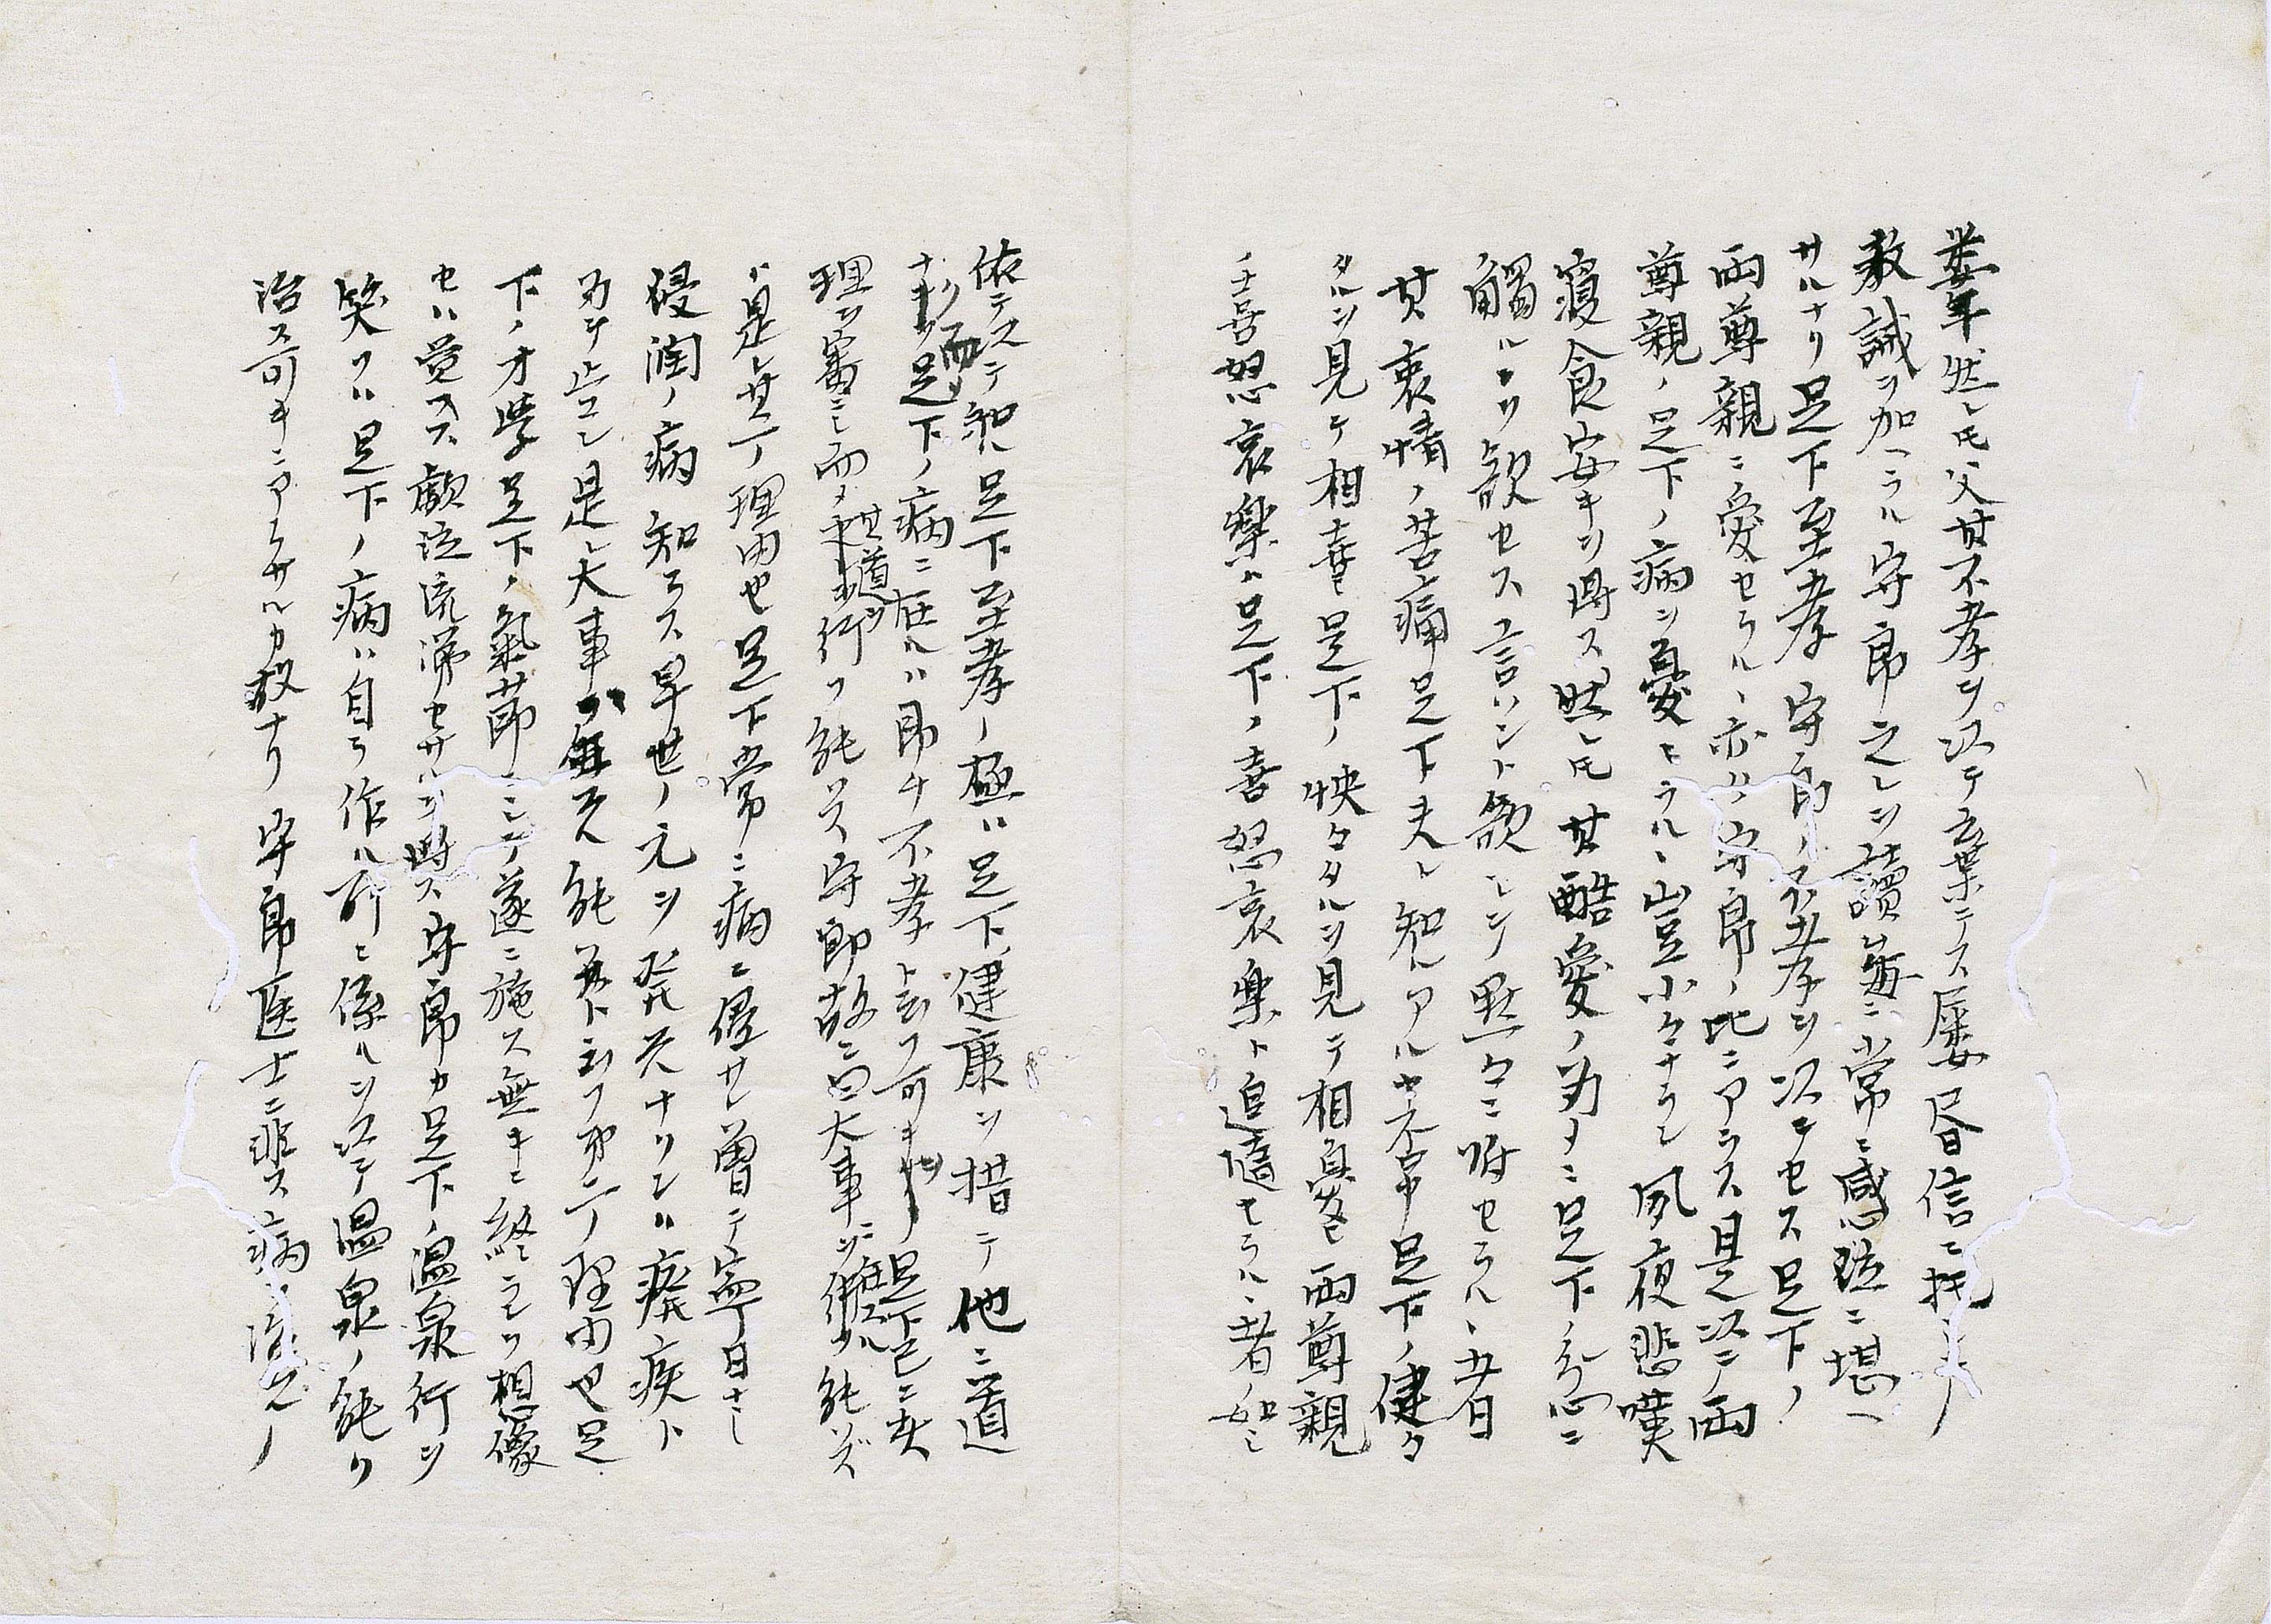 然レ𪜈父其不孝ヲ以テ棄テス屡昏信ニ托シ
教誡ヲ加ヘラル守郎之レヲ讀毎ニ常ニ感泣ニ堪ヘ
サルナリ足下至孝守郎ノ不孝ヲ以テセス足下ノ
両尊親ニ愛セラルヽ亦ハ守郎ノ比ニアラス是以テ両
尊親ノ足下ノ病ヲ憂ヒラルヽ豈小々ナラン夙夜悲嘆
寝食安キヲ得ス然レ𪜈其酷愛ノ為メニ足下ノ心ニ
觸ルヽヲ欲セス言ハント欲シテ黙々ニ附セラルヽ者
其衷情ノ苦痛足下夫レ知ルアルヤ不常足下ノ健々
タルヲ見テ相喜ヒ足下ノ怏々タルヲ見テ相憂ヒ両尊親
ノ喜怒哀樂ハ足下ノ喜怒哀樂ト追隨セラルヽ者如シ
依テ以テ知ル足下至孝ノ極ハ足下ノ健康ヲ措テ他ニ道
ナキヲ而メ足下ノ病ニ在ルハ即チ不孝ト云フ可キ也足下已ニ其
理ヲ審ニシ而メ其道ヲ行フ能ハス守郎故ニ曰大事ニ能ハズ
ハ是レ其一ノ理由也足下常ニ病ニ侵サレ曽テ寧日ナシ
侵潤ノ病知ラス早世ノ元ヲ発スナリシハ癈疾ト
為ナラン是レ大事ハ無ス能ハスト云フ第二ノ理由也足
下ノ才學足下ノ氣節ニシテ遂ニ施ス無キニ終ラレヲ想像
セハ覚ヘス歔泣流涕セサルヲ得ス守郎カ足下ノ温泉行ヲ
笑フハ足下ノ病ハ自ラ作ル所ニ係ルヲ以テ温泉ノ能ク
治ス可キニアラサルカ故ナリ守郎医士ニ非ス病ヲ治スル